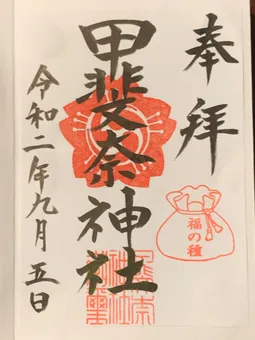 奉拜
福の種
甲斐奈神社
令和二年九月五日